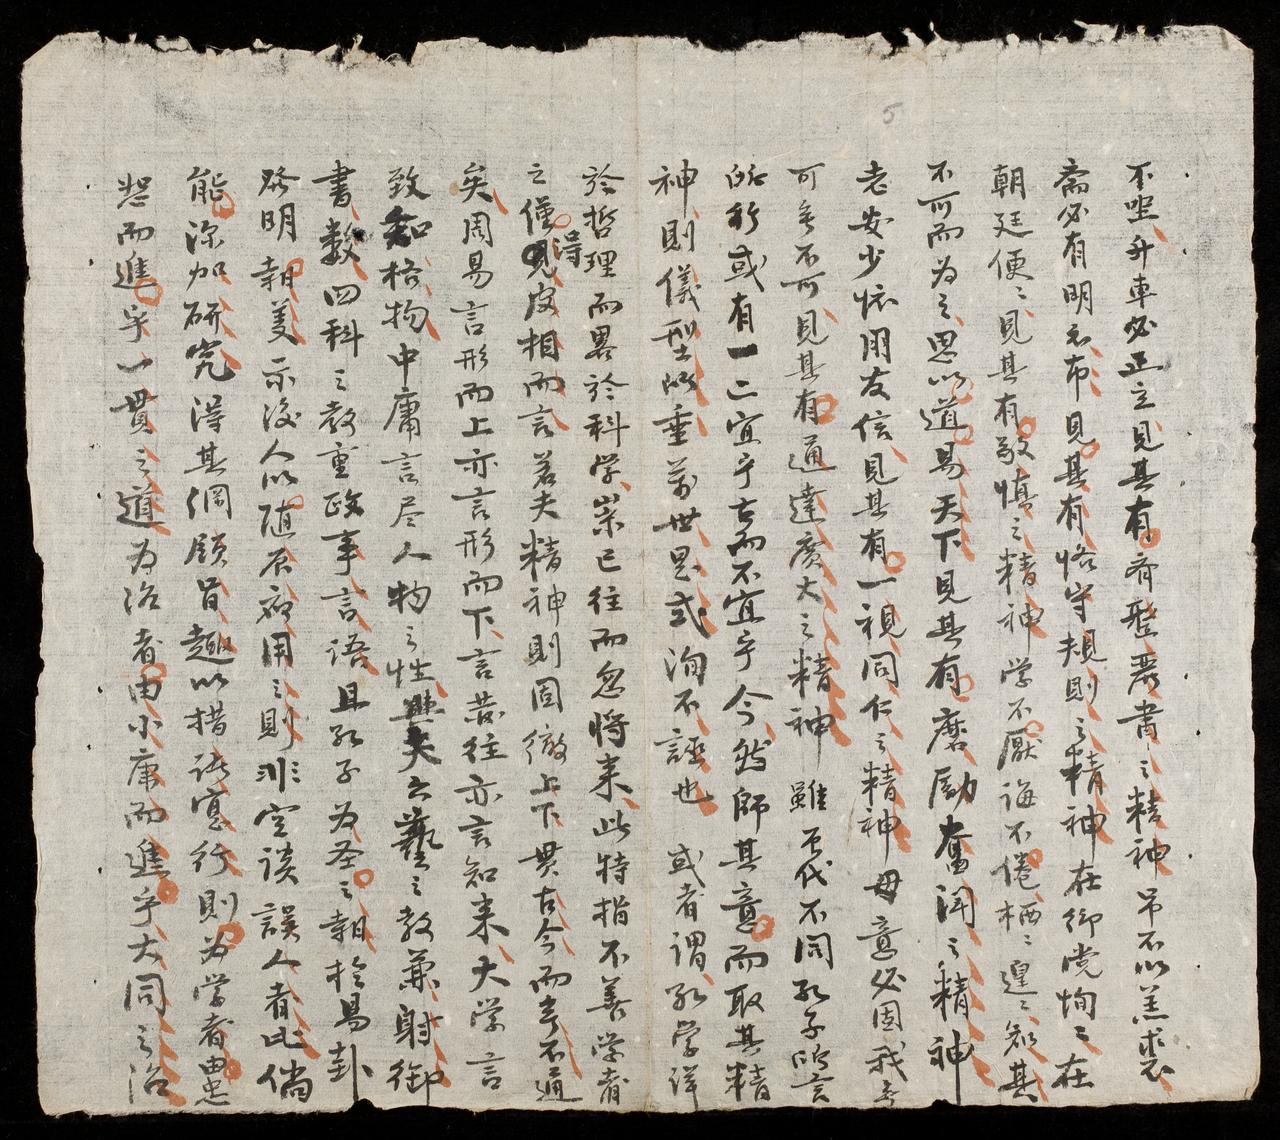 不坐升車必正立見其有齊整嚴肅之精神吊不以羔裘
齋必有明衣布見其有恪守規則之精神在鄉党恂〻在
朝廷便〻見其有敬慎之精神学不厭誨不倦栖〻遑〻知其
不可而為之思以道易天下見其有磨励奮闘之精神
老安少怀朋友信見其有一視同仁之精神毋意必固我無
可無不可見其有通達廣大之精神 雖年代不同孔子所言
所行或有一二宜乎古而不宜乎今然師其意而取其精
神則儀型所垂萬世是式洵不誣也 或者謂孔学詳
於哲理而畧於科学崇已往而忽将来此特指不善学者
之僅得皮相而言若夫精神則固徹上下貫古今而無不通
矣周易言形而上亦言形而下言藏往亦言知来大学言
致知格物中庸言尽人物之性與夫六藝之教兼射御
書数四科之教重政事言語且孔子為圣之時於易卦
發明時義示後人以随宜致用之則非空談誤人者比倘
能深加研究得其綱領旨趣以措諸寔行則为学者由忠
恕而進乎一貫之道为治者由小康而進乎大同之治